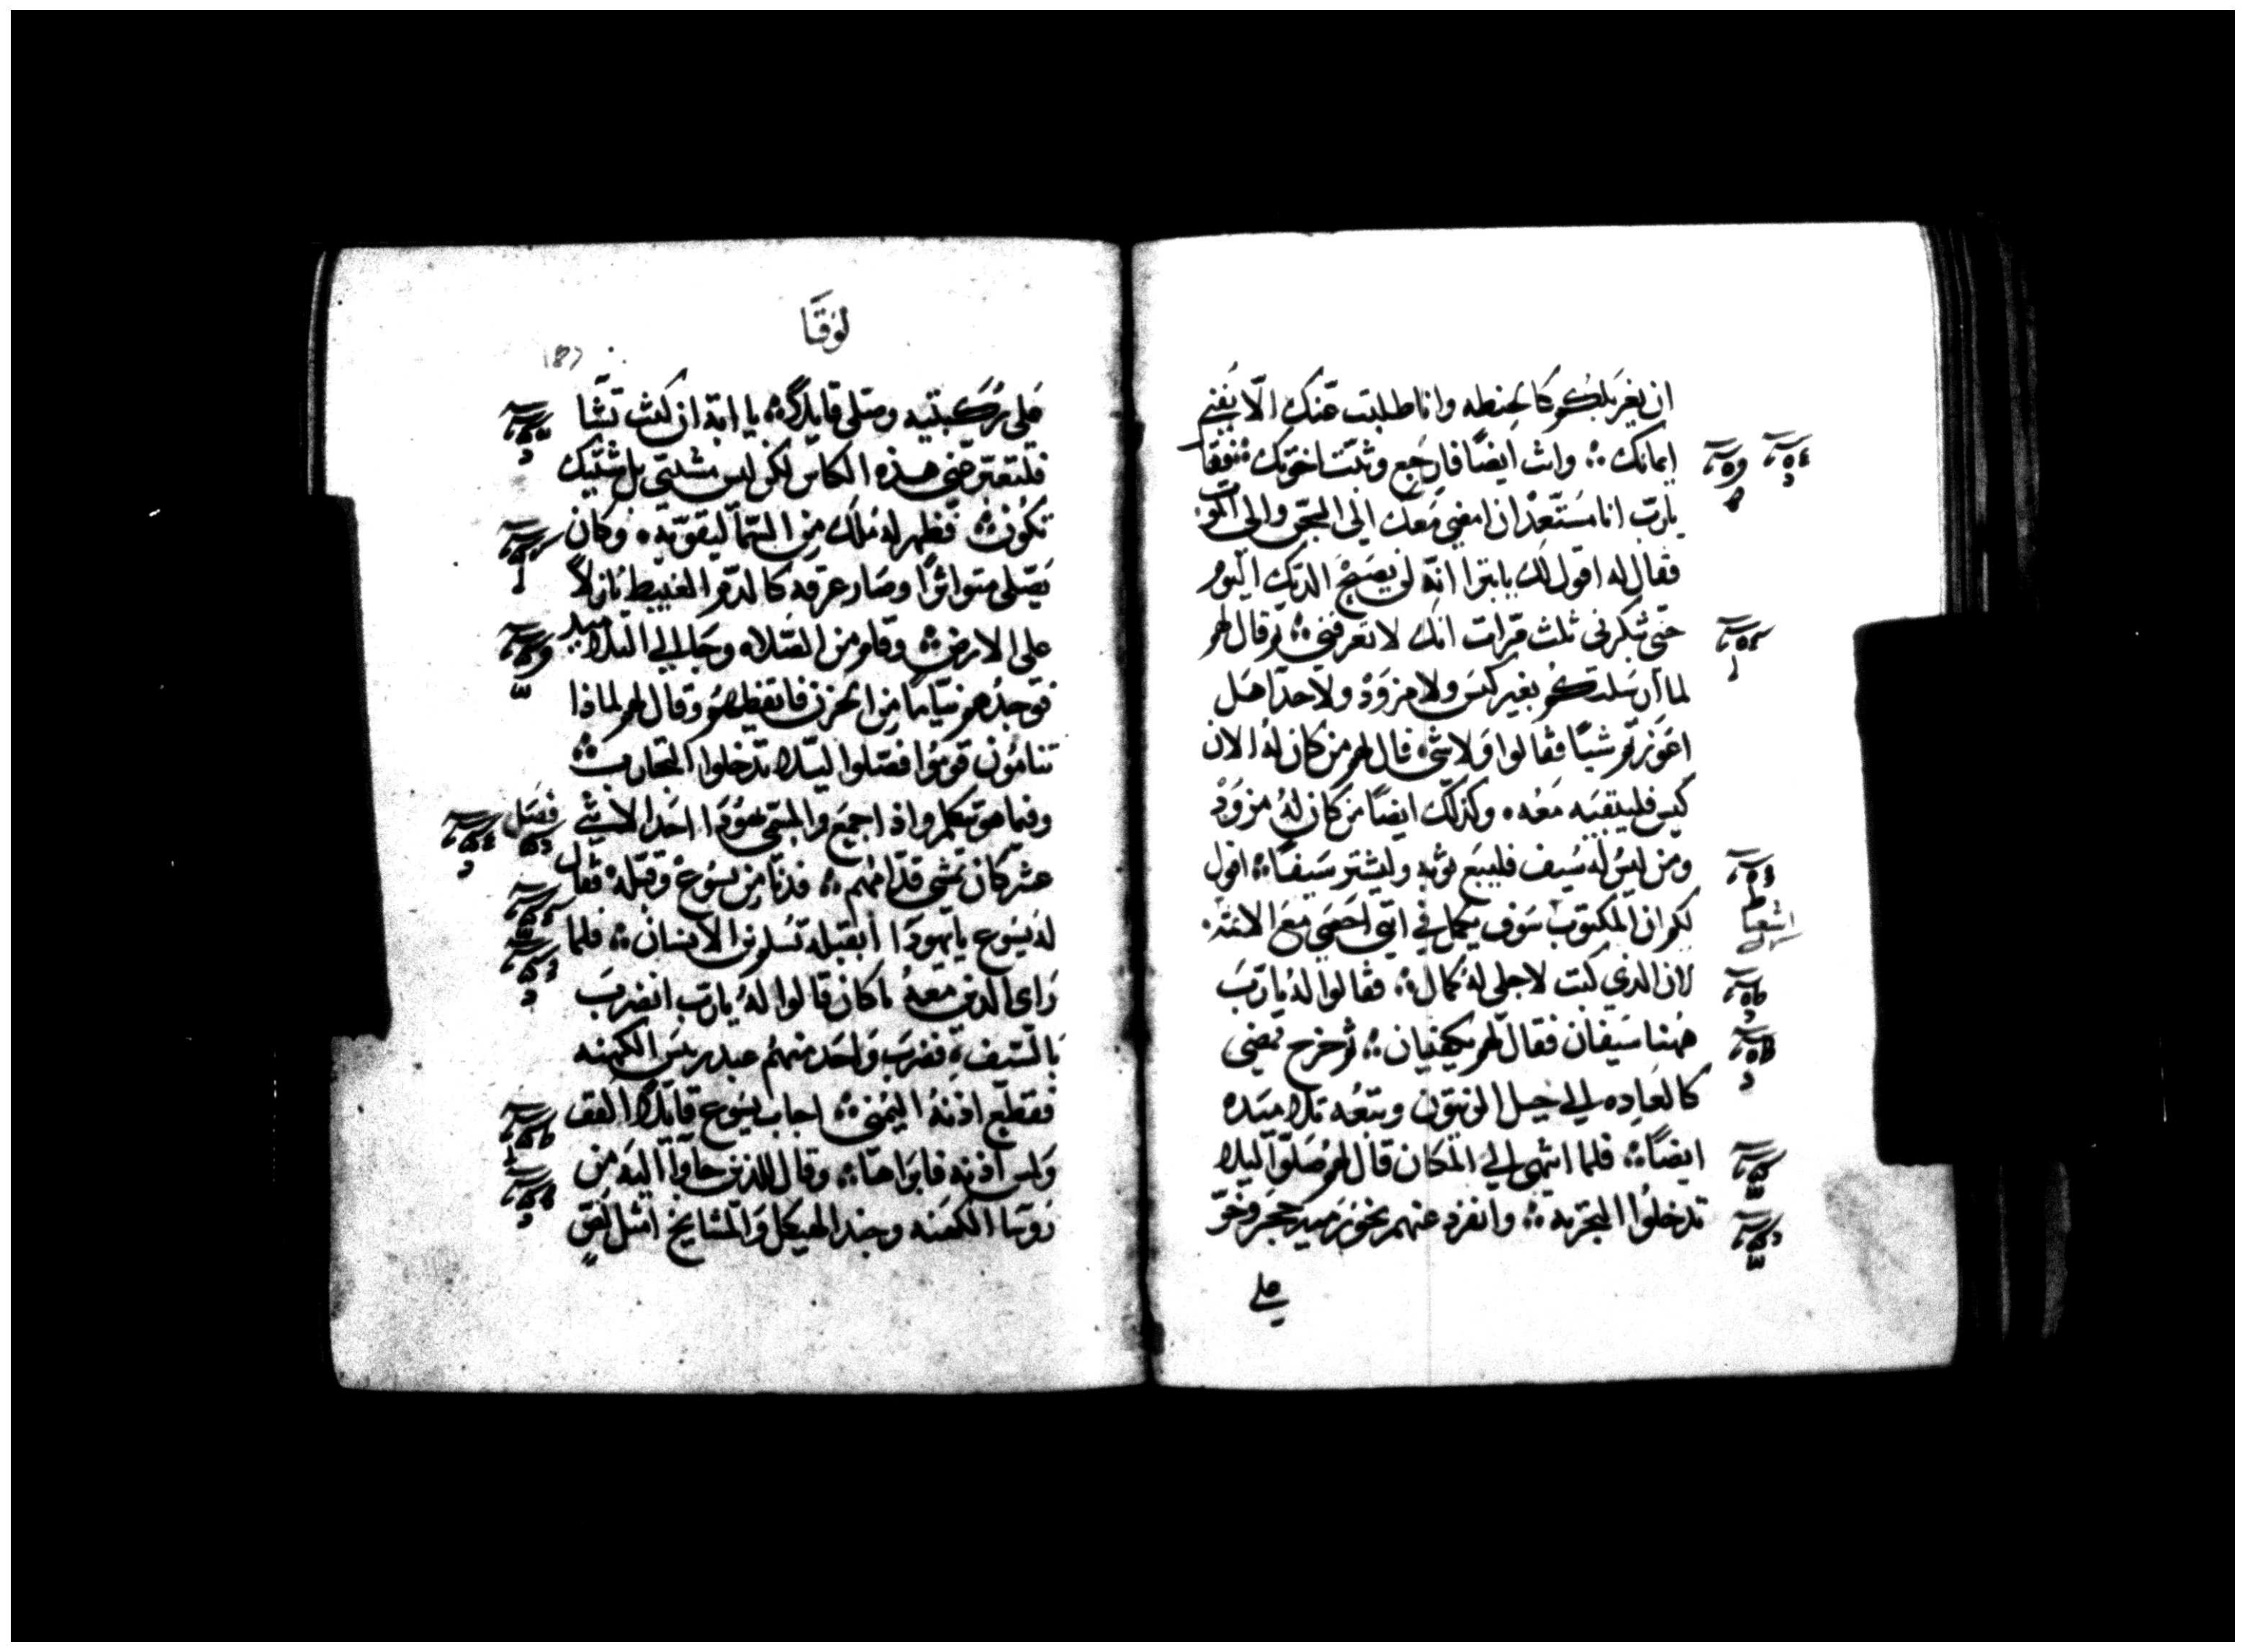 ان يغربلكم كالحنطه وانا طلبت عنك الا يفنى
ايمانك ؞ وانت ايضًا فارجع وثبت اخوتك ؞ فقال
يارب انا مستعد ان امضي معك الى الحبس والى الموت
فقال له اقول لك يا بترا انه لن يصيح الديك اليوم
حتى تنكرني ثلث مرات انك لا تعرفني ؞ ثم قال لهم
لما ارسلتكم بغير كيس ولا مزود ولا حدا هل
اعوزتم شيئًا فقالوا ولا شي ؞ قال لهم من كان له الان
كيس فليقيه معه ۰ وكذلك ايضًا من كان له مزود
ومن ليس له سيف فليبيع ثوبه وليشتر سيفًا ؞ اقول
لكم ان المكتوب سوف يكمل في انني احصي مع الاثمه
لان الذي كتب لاجلي له كمال ؞ فقالوا له يا رب
ههنا سيفان فقال لهم يكفيان ؞ ثم خرج يمضي
كالعاده الى جبل الزيتون وتبعه تلاميده
ايضًا ؞ فلما انتهى الى المكان قال لهم صلوا ليلا
تدخلوا التجربه ؞ وانفرد عنهم نحو رمية حجر وخر
على
لوقا
187
على ركبتيه وصلى قايلا ؞ يا ابة ان كنت تشا
فلتعبر عني هذه الكاس لكن ليس مشيتي بل مشيتك
تكون ؞ فظهر له ملاك من السما ليقويه ۰ وكان
يصلي متواترًا وصار عرقه كالدم العبيط نازلاً
على الارض ؞ وقام من الصلاه وجا الى التلاميد
فوجدهم نيامًا من الحزن فايقظهم وقال لهم لماذا
تنامون قوموا فصلوا ليلا تدخلوا التجارب ؞
وفيما هو يتكلم واذا جميع والمسمى يهودا احد الاثني فصل
عشر كان يمشي قدامهم ؞ فدنا من يسوع وقبله فقال
له يسوع يا يهودا ابقبله تسلم ابن الانسان ؞ فلما
راى الذين معه ما كان قالوا له يا رب انضرب
بالسيف ؞ فضرب واحد منهم عبد ريس الكهنه
فقطع اذنه اليمنى ؞ اجاب يسوع قايلا
ولمس اذنه فابراها ؞ وقال للذين جاوا اليه من
روسا الكهنه وجند الهيكل والمشايخ امثل لص